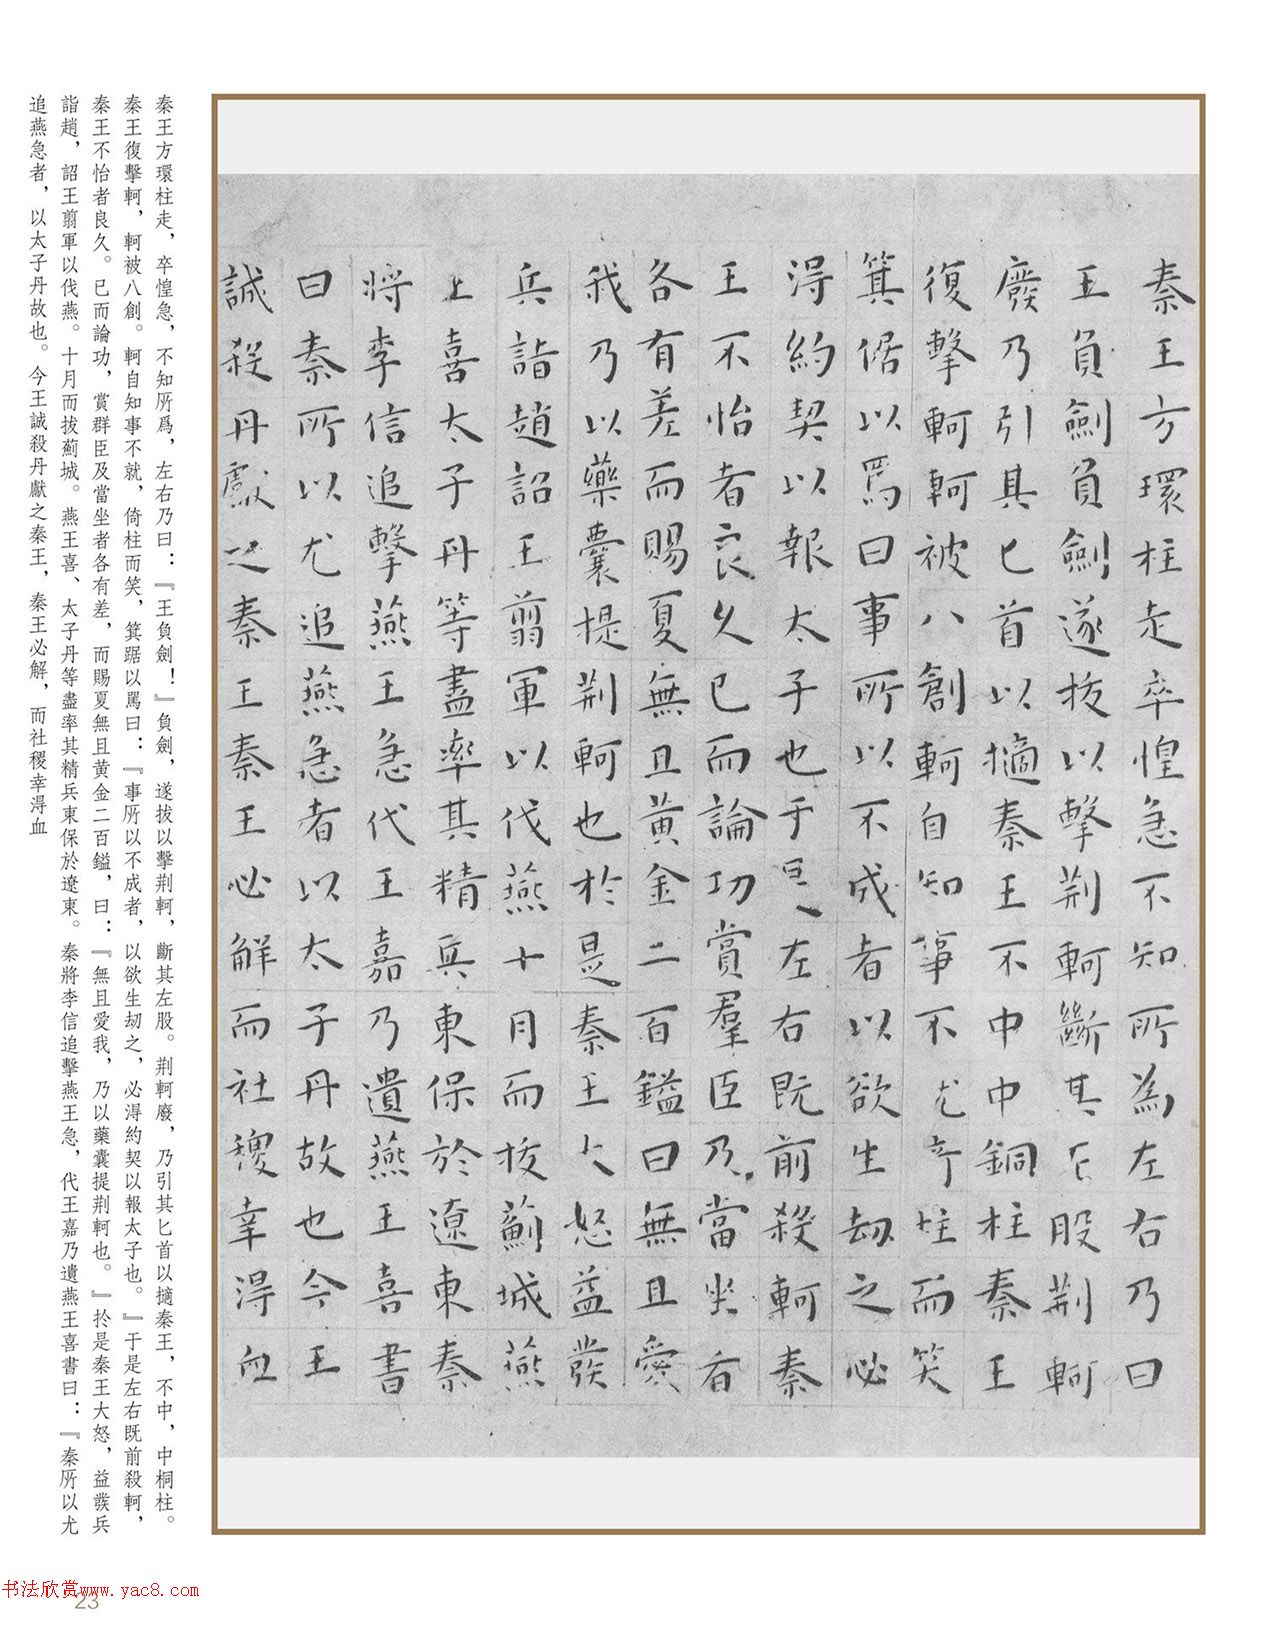 秦王方環柱走卒惶急不知所為左右乃曰
王負劍負劍遂拔以擊荆軻斷其左股荆軻
廢乃引其匕首以擿秦王不中中銅柱秦王
復擊軻軻被八創軻自知事不就倚柱而笑
箕倨以罵曰事所以不成者以欲生劫之必
淂約契以報太子也于是左右既前殺軻秦
王不怡者良久已而論功賞羣臣及當坐者
各有差而賜夏無且黄金二百鎰曰無且愛
我乃以藥囊提荆軻也於是秦王大怒益發
兵詣趙詔王翦軍以伐燕十月而拔薊城燕
王喜太子丹等盡率其精兵東保於遼東秦
將李信追擊燕王急代王嘉乃遺燕王喜書
曰秦所以尤追燕急者以太子丹故也今王
誠殺丹獻之秦王秦王必解而社稷幸淂血
秦王方環柱走，卒惶急，不知所爲，左右乃曰：『王負劍！』負劍，遂拔以擊荆軻，斷其左股。荆軻廢，乃引其匕首以擿秦王，不中，中桐柱。
秦王復擊軻，軻被八創。軻自知事不就，倚柱而笑，箕踞以罵曰：『事所以不成者，以欲生劫之，必淂約契以報太子也。』于是左右既前殺軻，
秦王不怡者良久。已而論功，賞群臣及當坐者各有差，而賜夏無且黄金二百鎰，曰：『無且愛我，乃以藥囊提荆軻也。』扵是秦王大怒，益發兵
詣趙，詔王翦軍以伐燕。十月而拔薊城。燕王喜、太子丹等盡率其精兵東保於遼東。秦將李信追擊燕王急，代王嘉乃遺燕王喜書曰：『秦所以尤
追燕急者，以太子丹故也。今王誠殺丹獻之秦王，秦王必解，而社稷幸淂血
书法欣赏www.yac8.com
23